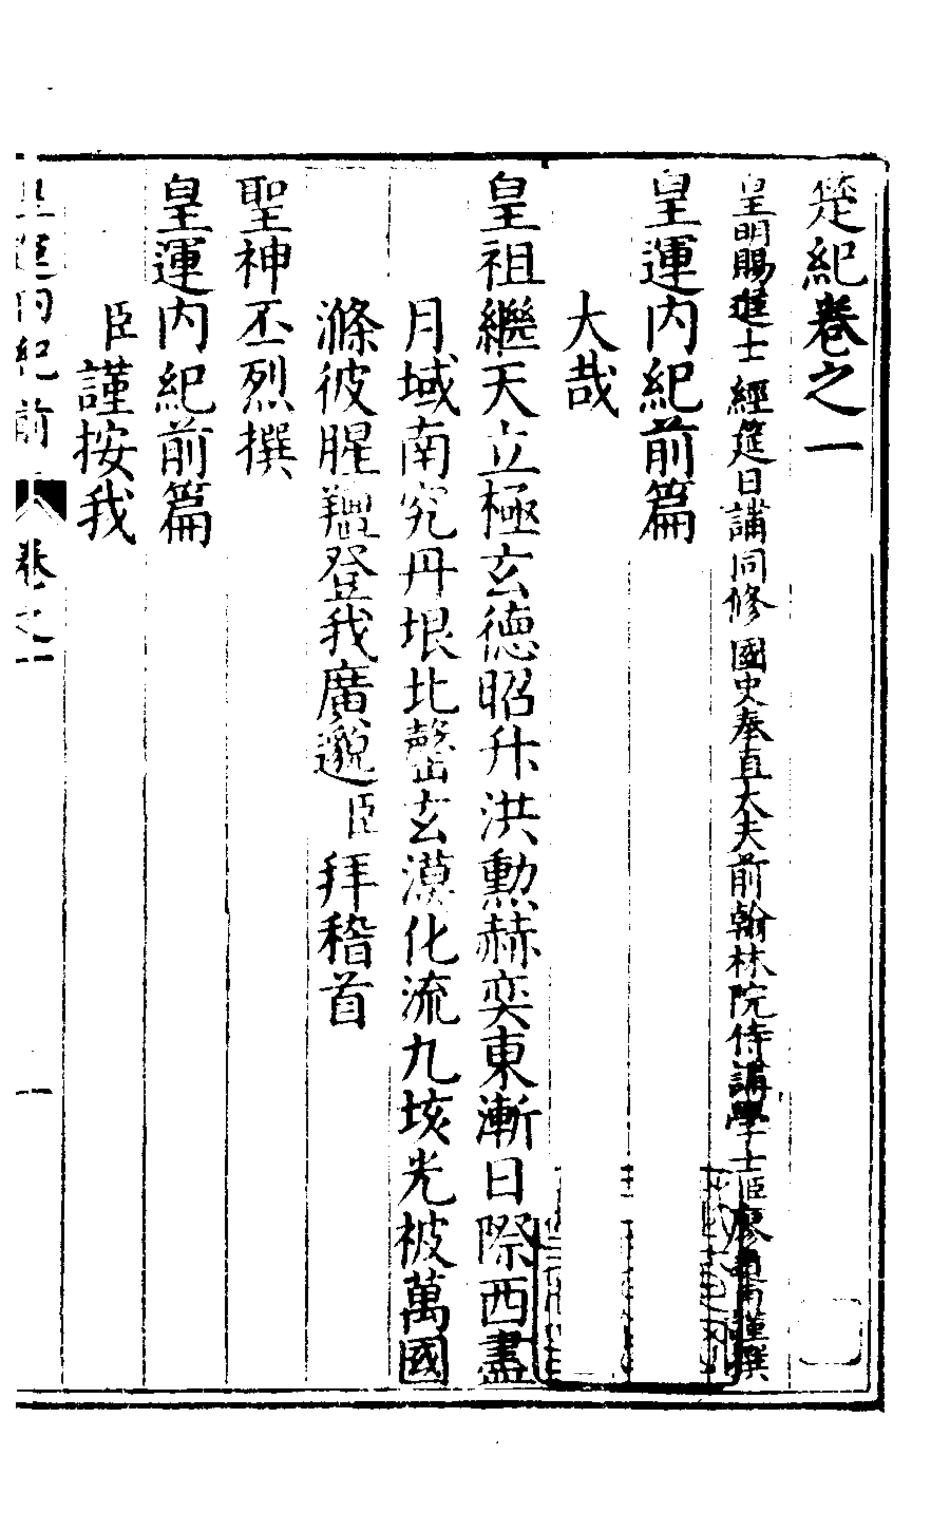 楚紀卷之一
皇明賜進士 經筵日講同修 國史奉直大夫前翰林院侍講學士臣廖道南謹撰
皇運内紀前篇
大哉
皇祖繼天立極玄德昭升洪勲赫奕東漸日際西盡
月域南究丹垠北罄玄漠化流九垓光被萬國
滌彼腥羶登我廣邈臣拜稽首
聖神丕烈撰
皇運内紀前篇
臣謹按我
皇運内紀前 卷之一 一